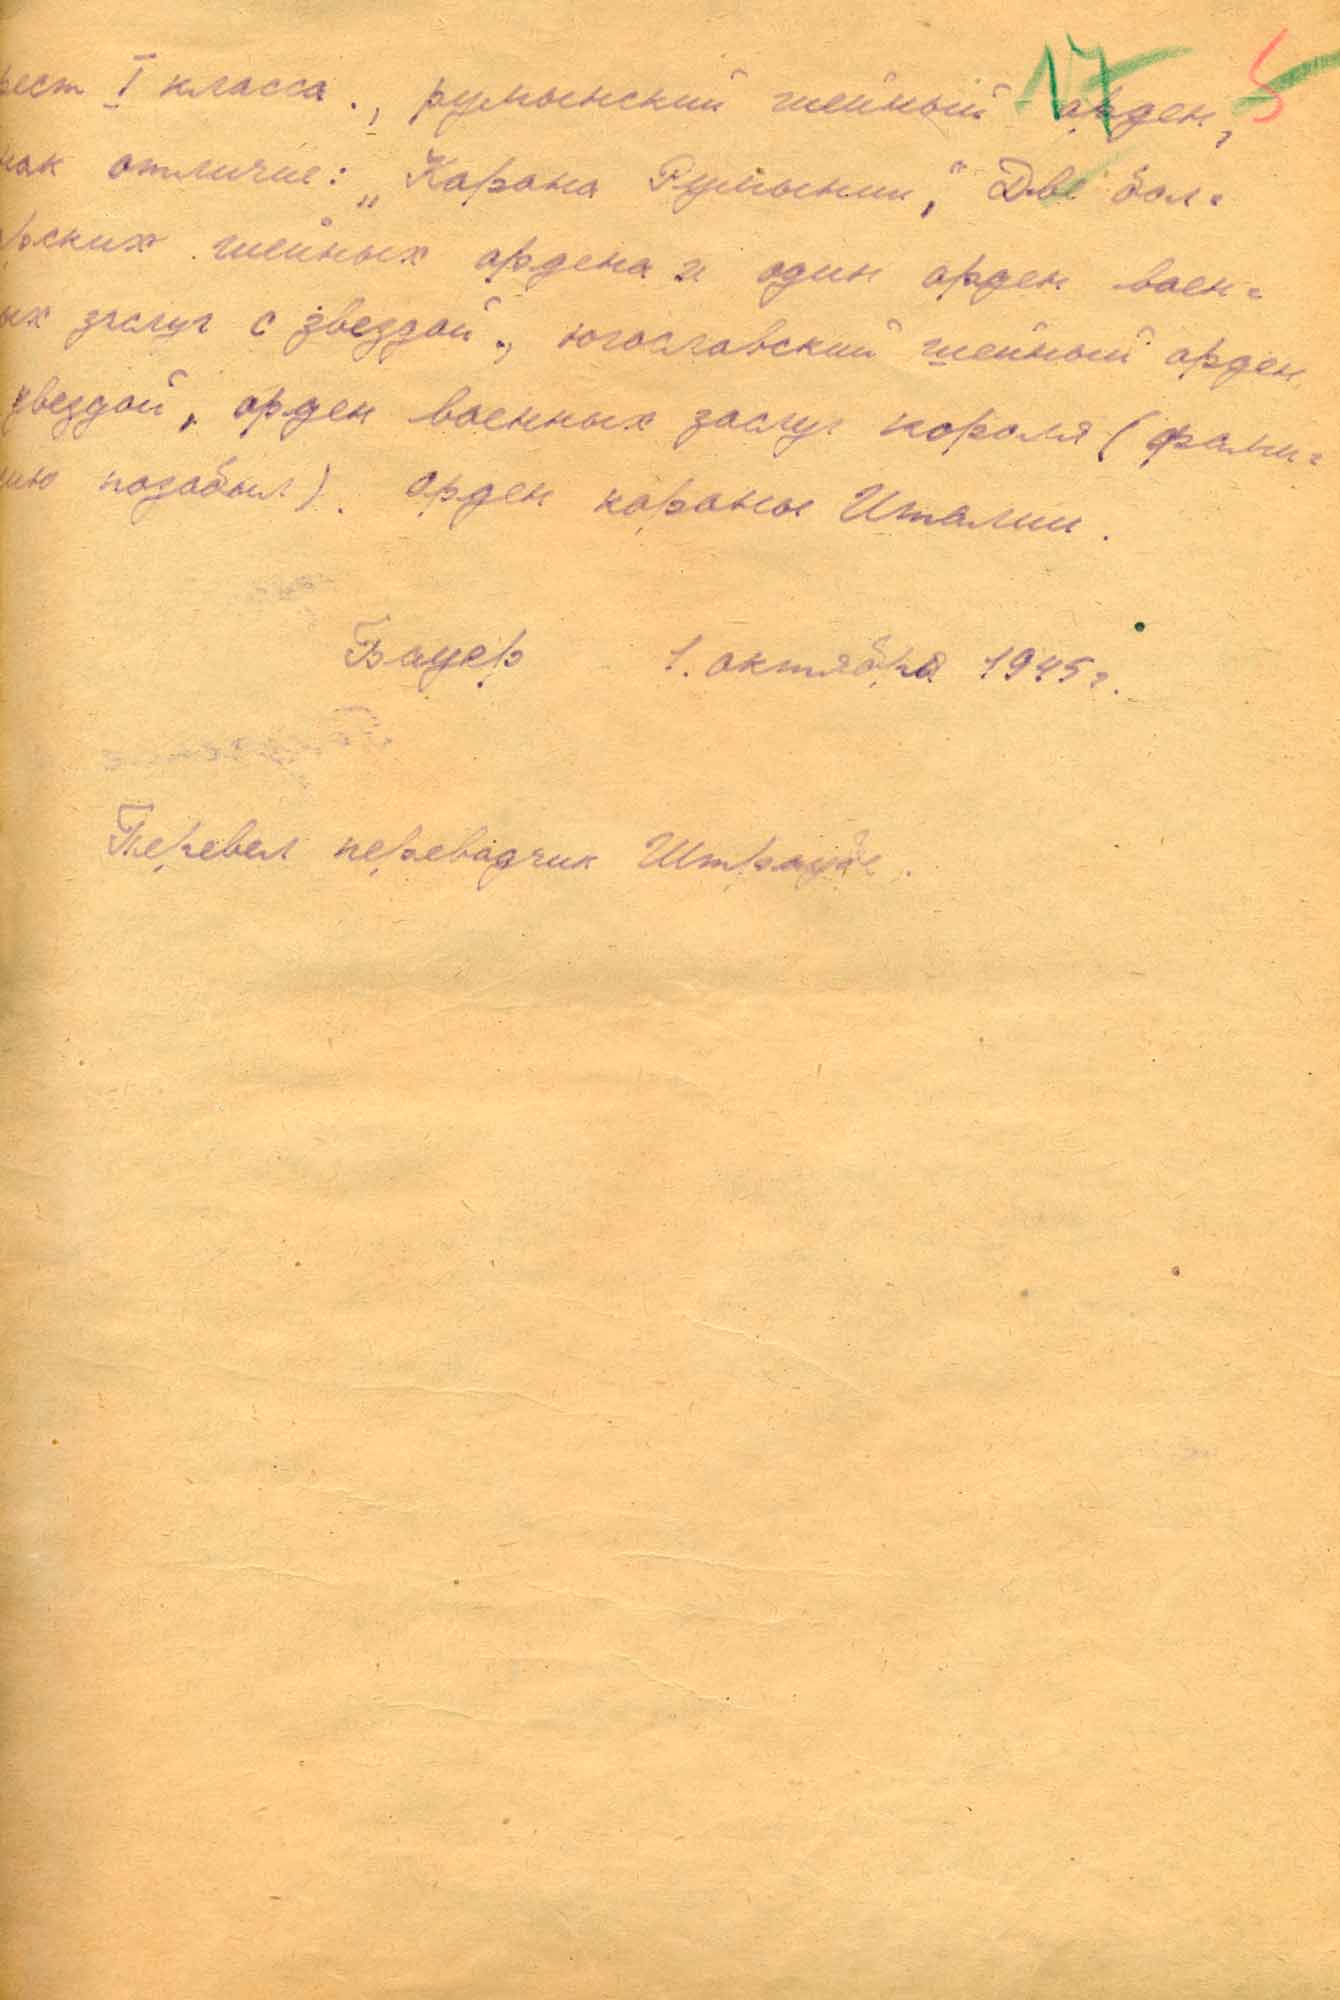 17 5
рест I класса., румынский шейный орден,
нак отличие: „Карона Румынии," Две бол-
рских шейных ордена и один орден воен-
ых заслуг с звездой., югославский шейный орден
звездой, орден военных заслуг короля (фами-
лию позабыл). орден короны Италии.
Бауер 1. октября 1945г.
Перевел переводчик